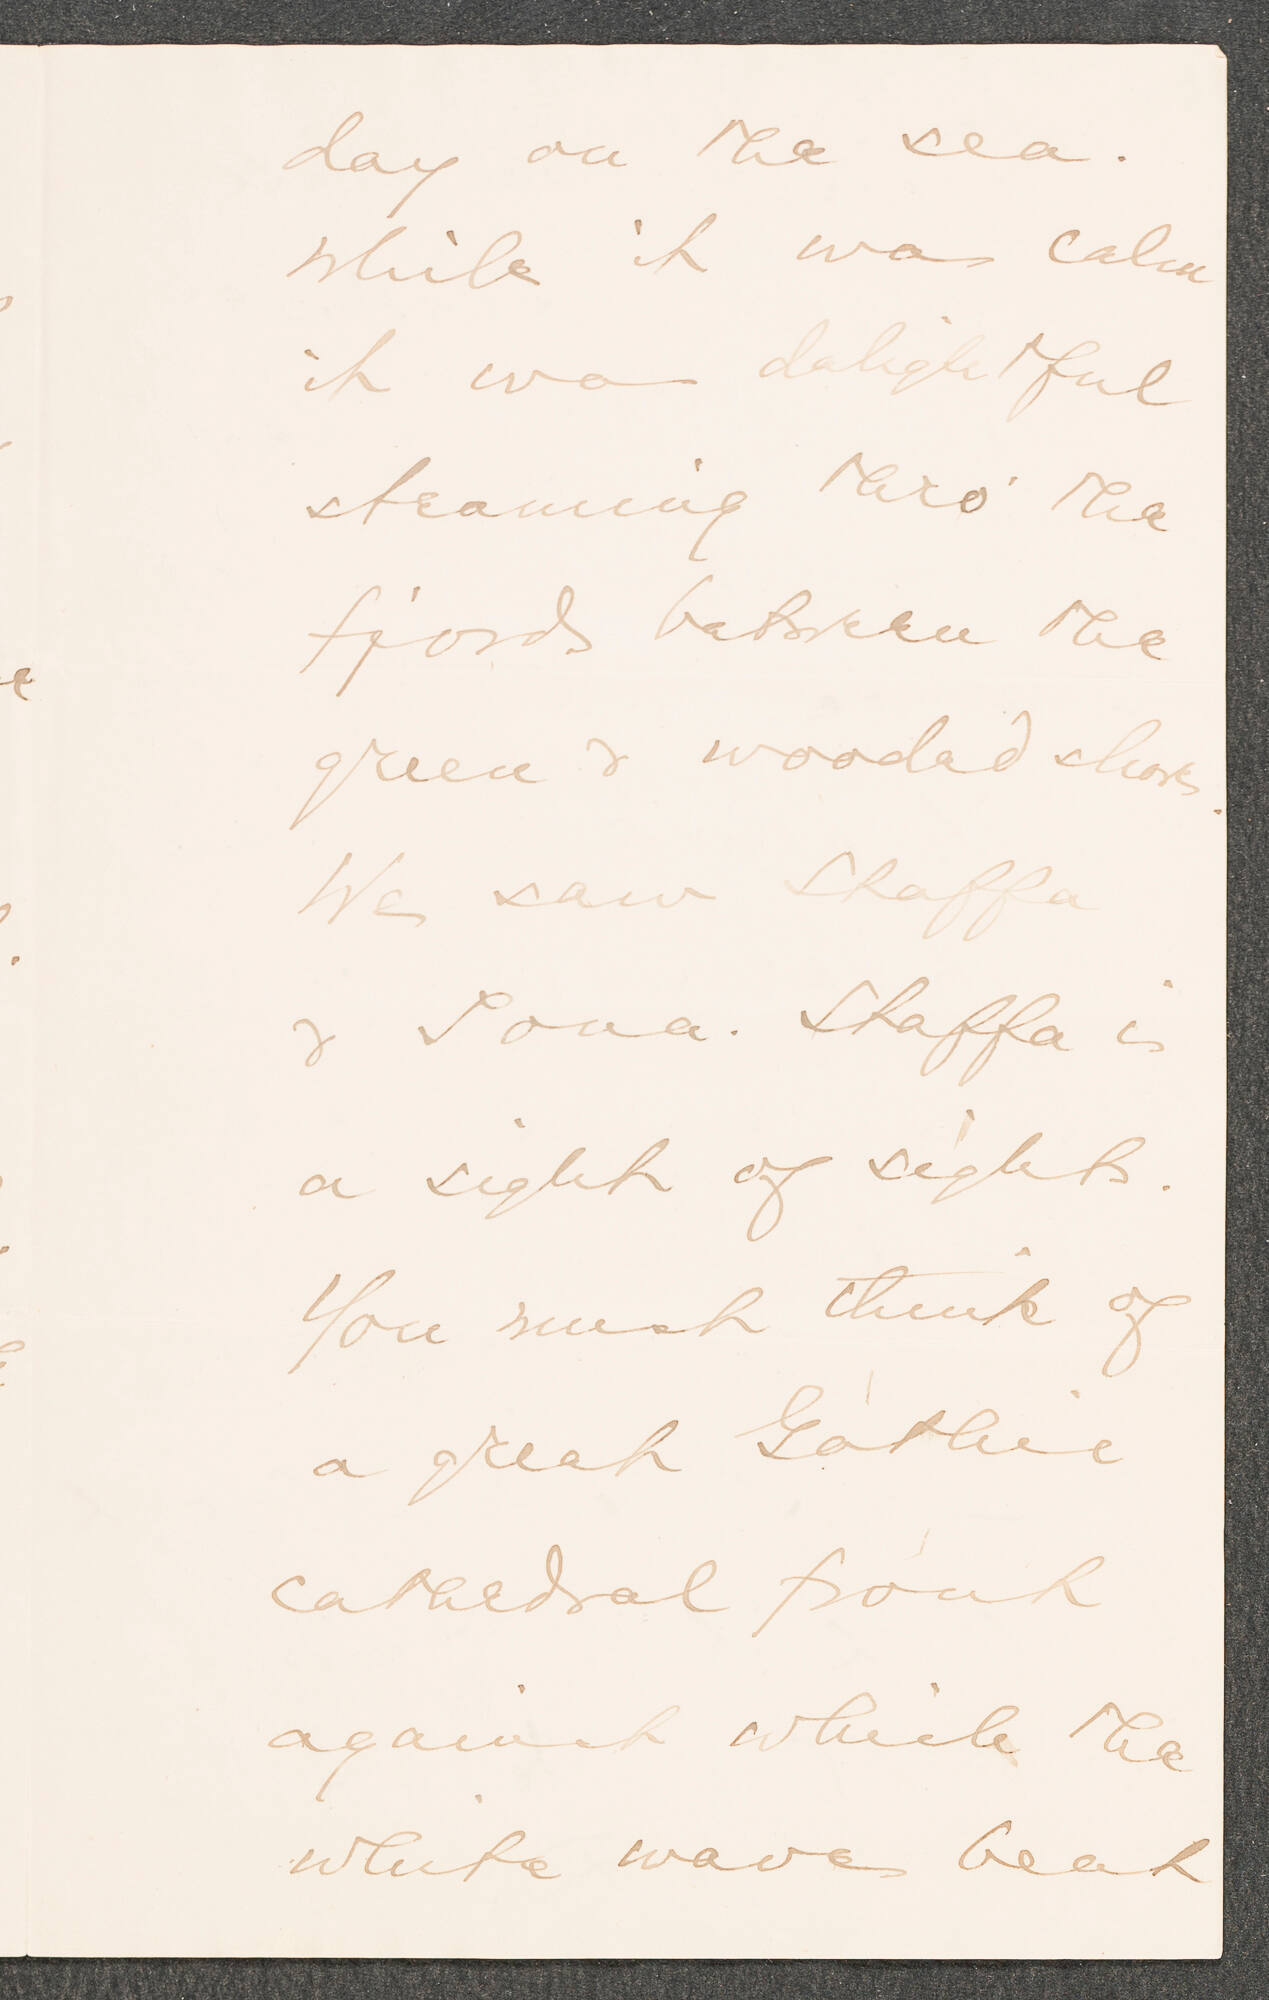 day on the sea.
while it was calm
it was delightful
steaming thro' the
fjords between the
green & wooded shores.
We saw Staffa
& Iona. Staffa is
a sight of sights.
You must think of
a great Gothic
cathedral front
against which the
white waves beat